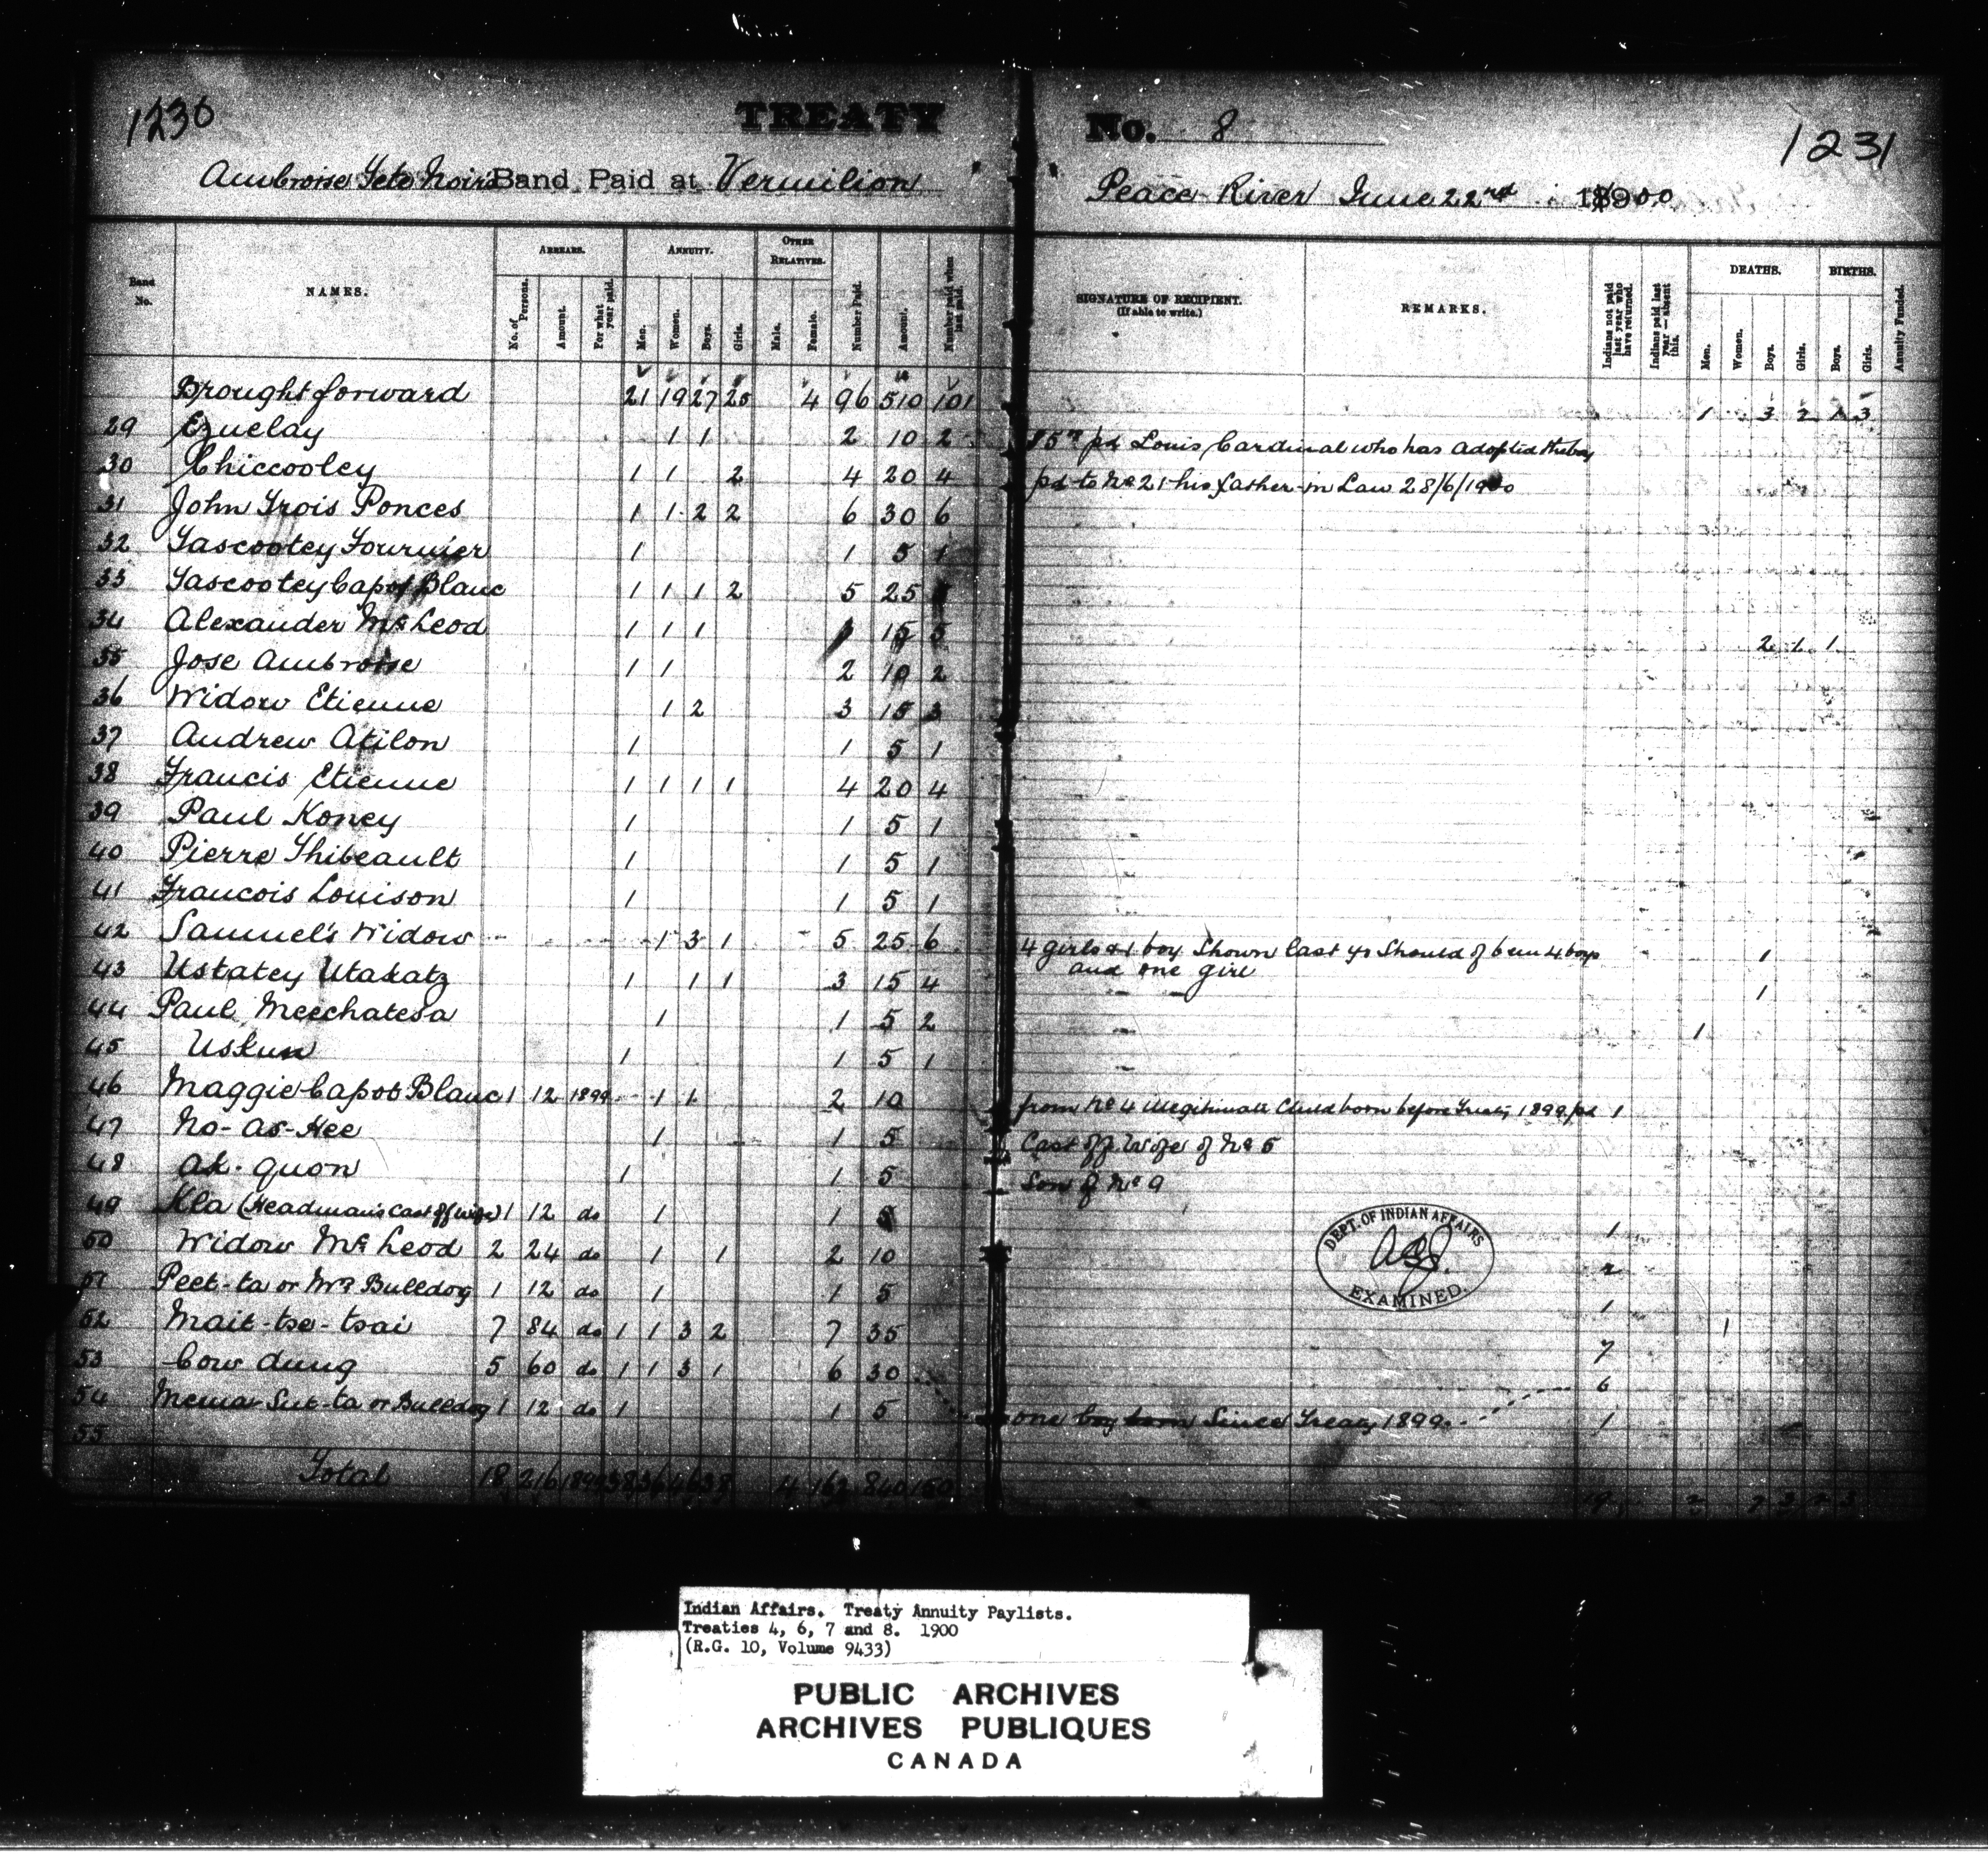 1230
TREATY
No. 8
1231
Ambroise Tete Noir's Band Paid at Vermilion
Peace River June 22nd 1900
Band No.
NAMES.
ARREARS.
No. of Persons.
Amount.
For what year paid.
ANNUITY.
Men.
Women.
Boys.
Girls.
OTHER RELATIVES.
Male.
Female.
Number Paid.
Amount.
Number paid when last paid.
SIGNATURE OF RECIPIENT.
(If able to write.)
REMARKS.
Indians not paid last year who have returned.
Indians paid last year—absent this.
DEATHS.
Men.
Women.
Boys.
Girls.
BIRTHS.
Boys.
Girls.
Annuity Funded.
Brought forward 21 19 27 25 4 96 510 101 1 3 2 1 3
29 Ezuelay 1 1 2 10 2 pd Louis Cardinal who has adopted the boy
30 Chiccooley 1 1 2 4 20 4 pd to No 21 his father-in Law 28/6/1900
31 John Trois Ponces 1 1 2 2 6 30 6
32 Tascootey Fournier 1 1 5 1
33 Tascootey Capot Blanc 1 1 1 2 5 25
34 Alexander McLeod 1 1 1 15 5 2 1 1
35 Jose Ambroise 1 1 2 10 2
36 Widow Etienne 1 2 3 15 3
37 Andrew Atilon 1 1 5 1
38 Francis Etienne 1 1 1 1 4 20 4
39 Paul Koney 1 1 5 1
40 Pierre Thibeault 1 1 5 1
41 Francois Louison 1 1 5 1
42 Samuel's Widow 1 3 1 5 25 6 4 girls & 1 boy Shown last yr Should of been 4 boys 1
and one girl
43 Ustatey Utakatz 1 1 1 3 15 4 1
44 Paul Meechatesa 1 1 5 2 1
45 Uskun 1 1 5 1
46 Maggie Capot Blanc 1 12 1899 1 1 2 10 from No 4 illegitimate Child born before Treaty 1899 pd 1
47 No-as-Hee 1 1 5 Cast off Wife of No 5
48 Ak-quon 1 1 5 Son of No 9
49 Kla (Headman's Cast off wife) 1 12 do 1 1 5 1
50 Widow McLeod 2 24 do 1 1 2 10 2
51 Peet-ta or Mrs Bulldog 1 12 do 1 1 5 1
52 Mait-tse-tsai 7 84 do 1 1 3 2 7 35 7 1
53 Cow dung 5 60 do 1 1 3 1 6 30 6
54 Sut-ta or Bulldog 1 12 do 1 1 5 one boy born Since Treaty 1899 1
55
Total 18 216 1899 38 36 46 38 4 162 840 150 19 2 7 3 2 3
DEPT. OF INDIAN AFFAIRS
EXAMINED.
Indian Affairs. Treaty Annuity Paylists.
Treaties 4, 6, 7 and 8. 1900
(R.G. 10, Volume 9433)
PUBLIC ARCHIVES
ARCHIVES PUBLIQUES
CANADA